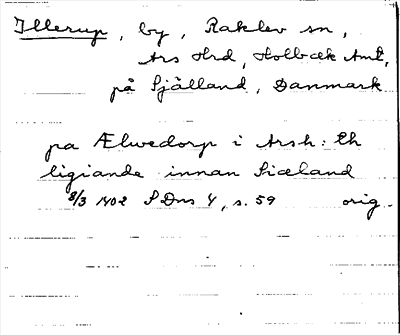 Illerup, by, Raklev sn,
Ars Hrd, Holbæk Amt,
på Själland, Danmark
pa Ælwedorp i Arsh: Eh
ligiande innan Siæland
8/3 1402 SDns 4, s. 59 orig.